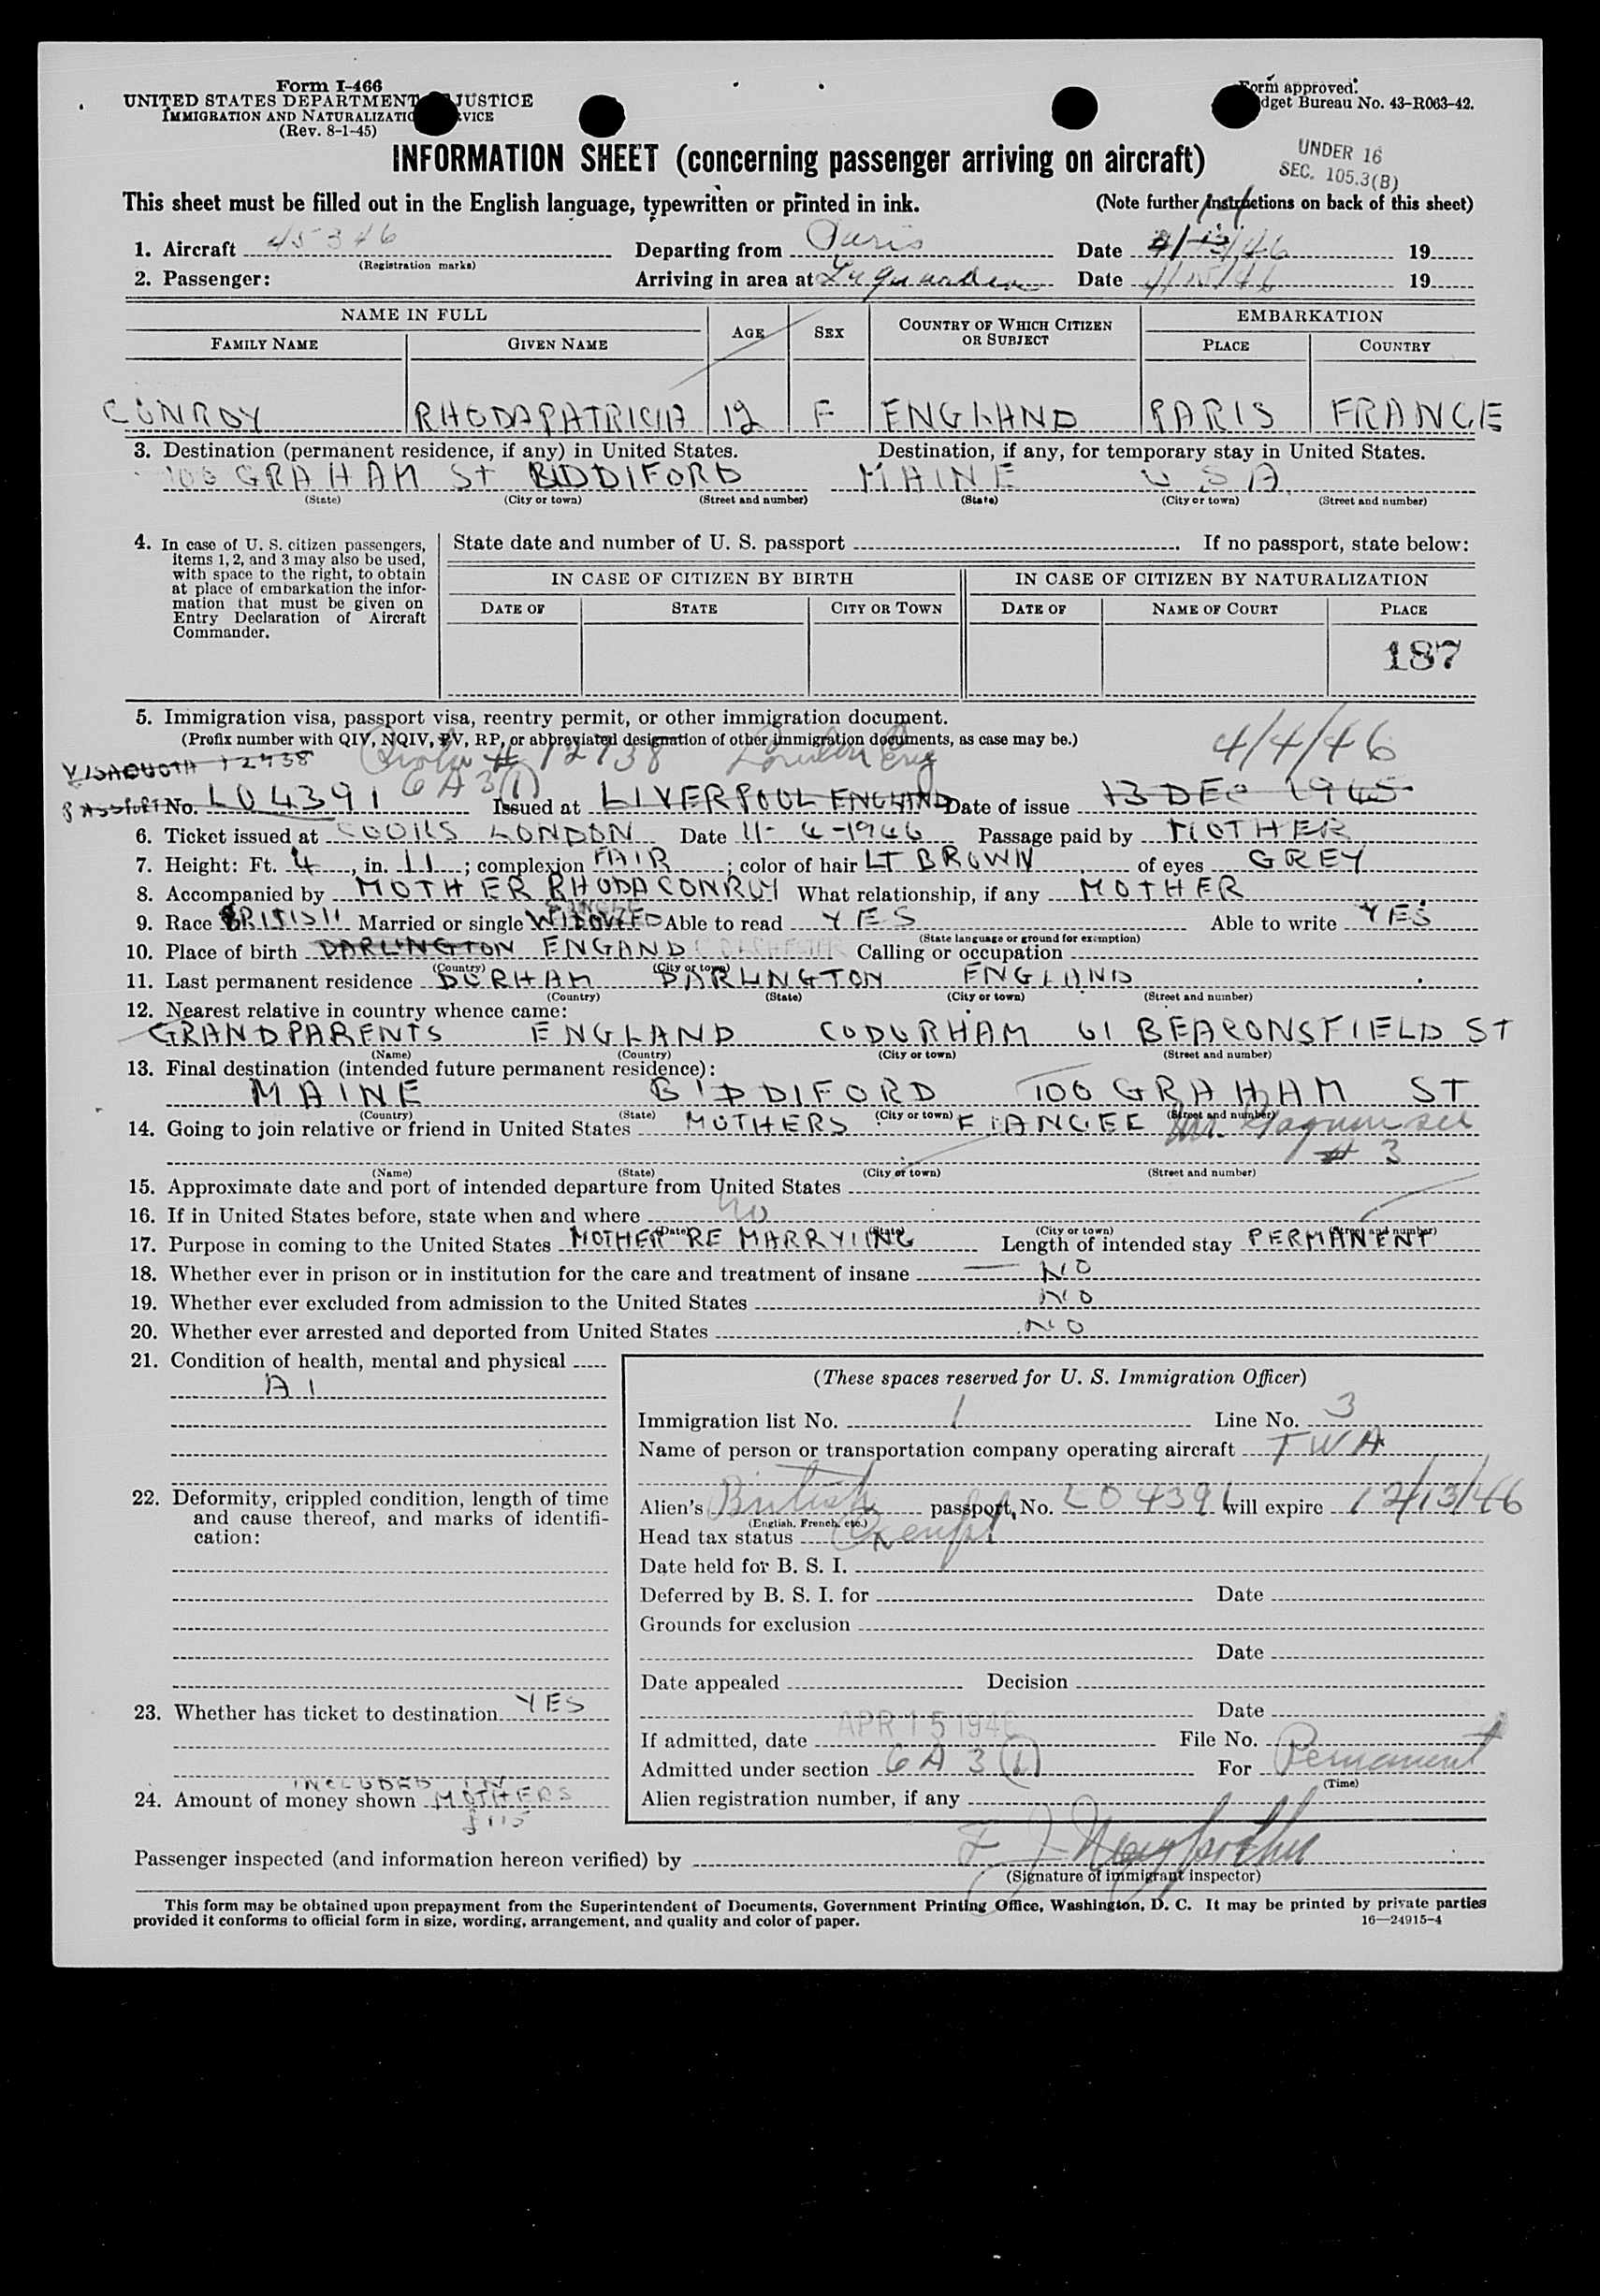 Form I-466
UNITED STATES DEPARTMENT JUSTICE
IMMIGRATION AND NATURALIZATIO VICE
(Rev. 8-1-45)
Form approved.
dget Bureau No. 43-R063-42.
INFORMATION SHEET (concerning passenger arriving on aircraft)
UNDER 16
SEC. 105.3(B)
This sheet must be filled out in the English language, typewritten or printed in ink. (Note further instructions on back of this sheet)
1. Aircraft 45346 Departing from Paris Date 4/13/46 19
(Registration marks)
2. Passenger: Arriving in area at Laguardia Date 4/15/46 19
NAME IN FULL
FAMILY NAME GIVEN NAME AGE SEX COUNTRY OF WHICH CITIZEN OR SUBJECT EMBARKATION PLACE COUNTRY
CONROY RHODA PATRICIA 12 F ENGLAND PARIS FRANCE
3. Destination (permanent residence, if any) in United States. Destination, if any, for temporary stay in United States.
100 GRAHAM ST BIDDIFORD MAINE U S A
(State) (City or town) (Street and number) (State) (City or town) (Street and number)
4. In case of U. S. citizen passengers, items 1, 2, and 3 may also be used, with space to the right, to obtain at place of embarkation the information that must be given on Entry Declaration of Aircraft Commander.
State date and number of U. S. passport . If no passport, state below:
IN CASE OF CITIZEN BY BIRTH IN CASE OF CITIZEN BY NATURALIZATION
DATE OF STATE CITY OR TOWN DATE OF NAME OF COURT PLACE
187
5. Immigration visa, passport visa, reentry permit, or other immigration document.
(Prefix number with QIV, NQIV, PV, RP, or abbreviated designation of other immigration documents, as case may be.)
4/4/46
VISA QUOTA 12938 Quota # 12938 London Eng
6 A 3(1)
PASSPORT No. LO4391 Issued at LIVERPOOL ENGLAND Date of issue 13 DEC 1945
6. Ticket issued at COOKS LONDON Date 11-4-1946 Passage paid by MOTHER
7. Height: Ft. 4, in. 11; complexion FAIR; color of hair LT BROWN of eyes GREY
8. Accompanied by MOTHER RHODA CONROY What relationship, if any MOTHER
9. Race BRITISH Married or single WIDOWED SINGLE Able to read YES Able to write YES
(State language or ground for exemption)
10. Place of birth DARLINGTON ENGAND COLCHESTER Calling or occupation
(Country) (City or town)
11. Last permanent residence DURHAM DARLINGTON ENGLAND
(Country) (State) (City or town) (Street and number)
12. Nearest relative in country whence came:
GRANDPARENTS ENGLAND CO DURHAM 61 BEACONSFIELD ST
(Name) (Country) (City or town) (Street and number)
13. Final destination (intended future permanent residence):
MAINE BIDDIFORD 100 GRAHAM ST
(Country) (State) (City or town) (Street and number)
14. Going to join relative or friend in United States MOTHERS FIANCEE
# 3
(Name) (State) (City or town) (Street and number)
15. Approximate date and port of intended departure from United States
16. If in United States before, state when and where no
(Date) (State) (City or town) (Street and number)
17. Purpose in coming to the United States MOTHER RE MARRYIING Length of intended stay PERMANENT
18. Whether ever in prison or in institution for the care and treatment of insane NO
19. Whether ever excluded from admission to the United States NO
20. Whether ever arrested and deported from United States NO
21. Condition of health, mental and physical
A 1
22. Deformity, crippled condition, length of time and cause thereof, and marks of identification:
23. Whether has ticket to destination YES
24. Amount of money shown INCLUDED IN MOTHERS
£115
(These spaces reserved for U. S. Immigration Officer)
Immigration list No. 1 Line No. 3
Name of person or transportation company operating aircraft TWA
Alien's British passport, No. LO 4391 will expire 12/13/46
(English, French, etc.)
Head tax status Exempt
Date held for B. S. I.
Deferred by B. S. I. for Date
Grounds for exclusion
Date
Date appealed Decision
Date
If admitted, date APR 15 1946 File No.
Admitted under section 6 A 3 (1) For Permanent
(Time)
Alien registration number, if any
Passenger inspected (and information hereon verified) by
(Signature of immigrant inspector)
This form may be obtained upon prepayment from the Superintendent of Documents, Government Printing Office, Washington, D. C. It may be printed by private parties
provided it conforms to official form in size, wording, arrangement, and quality and color of paper. 16—24915-4